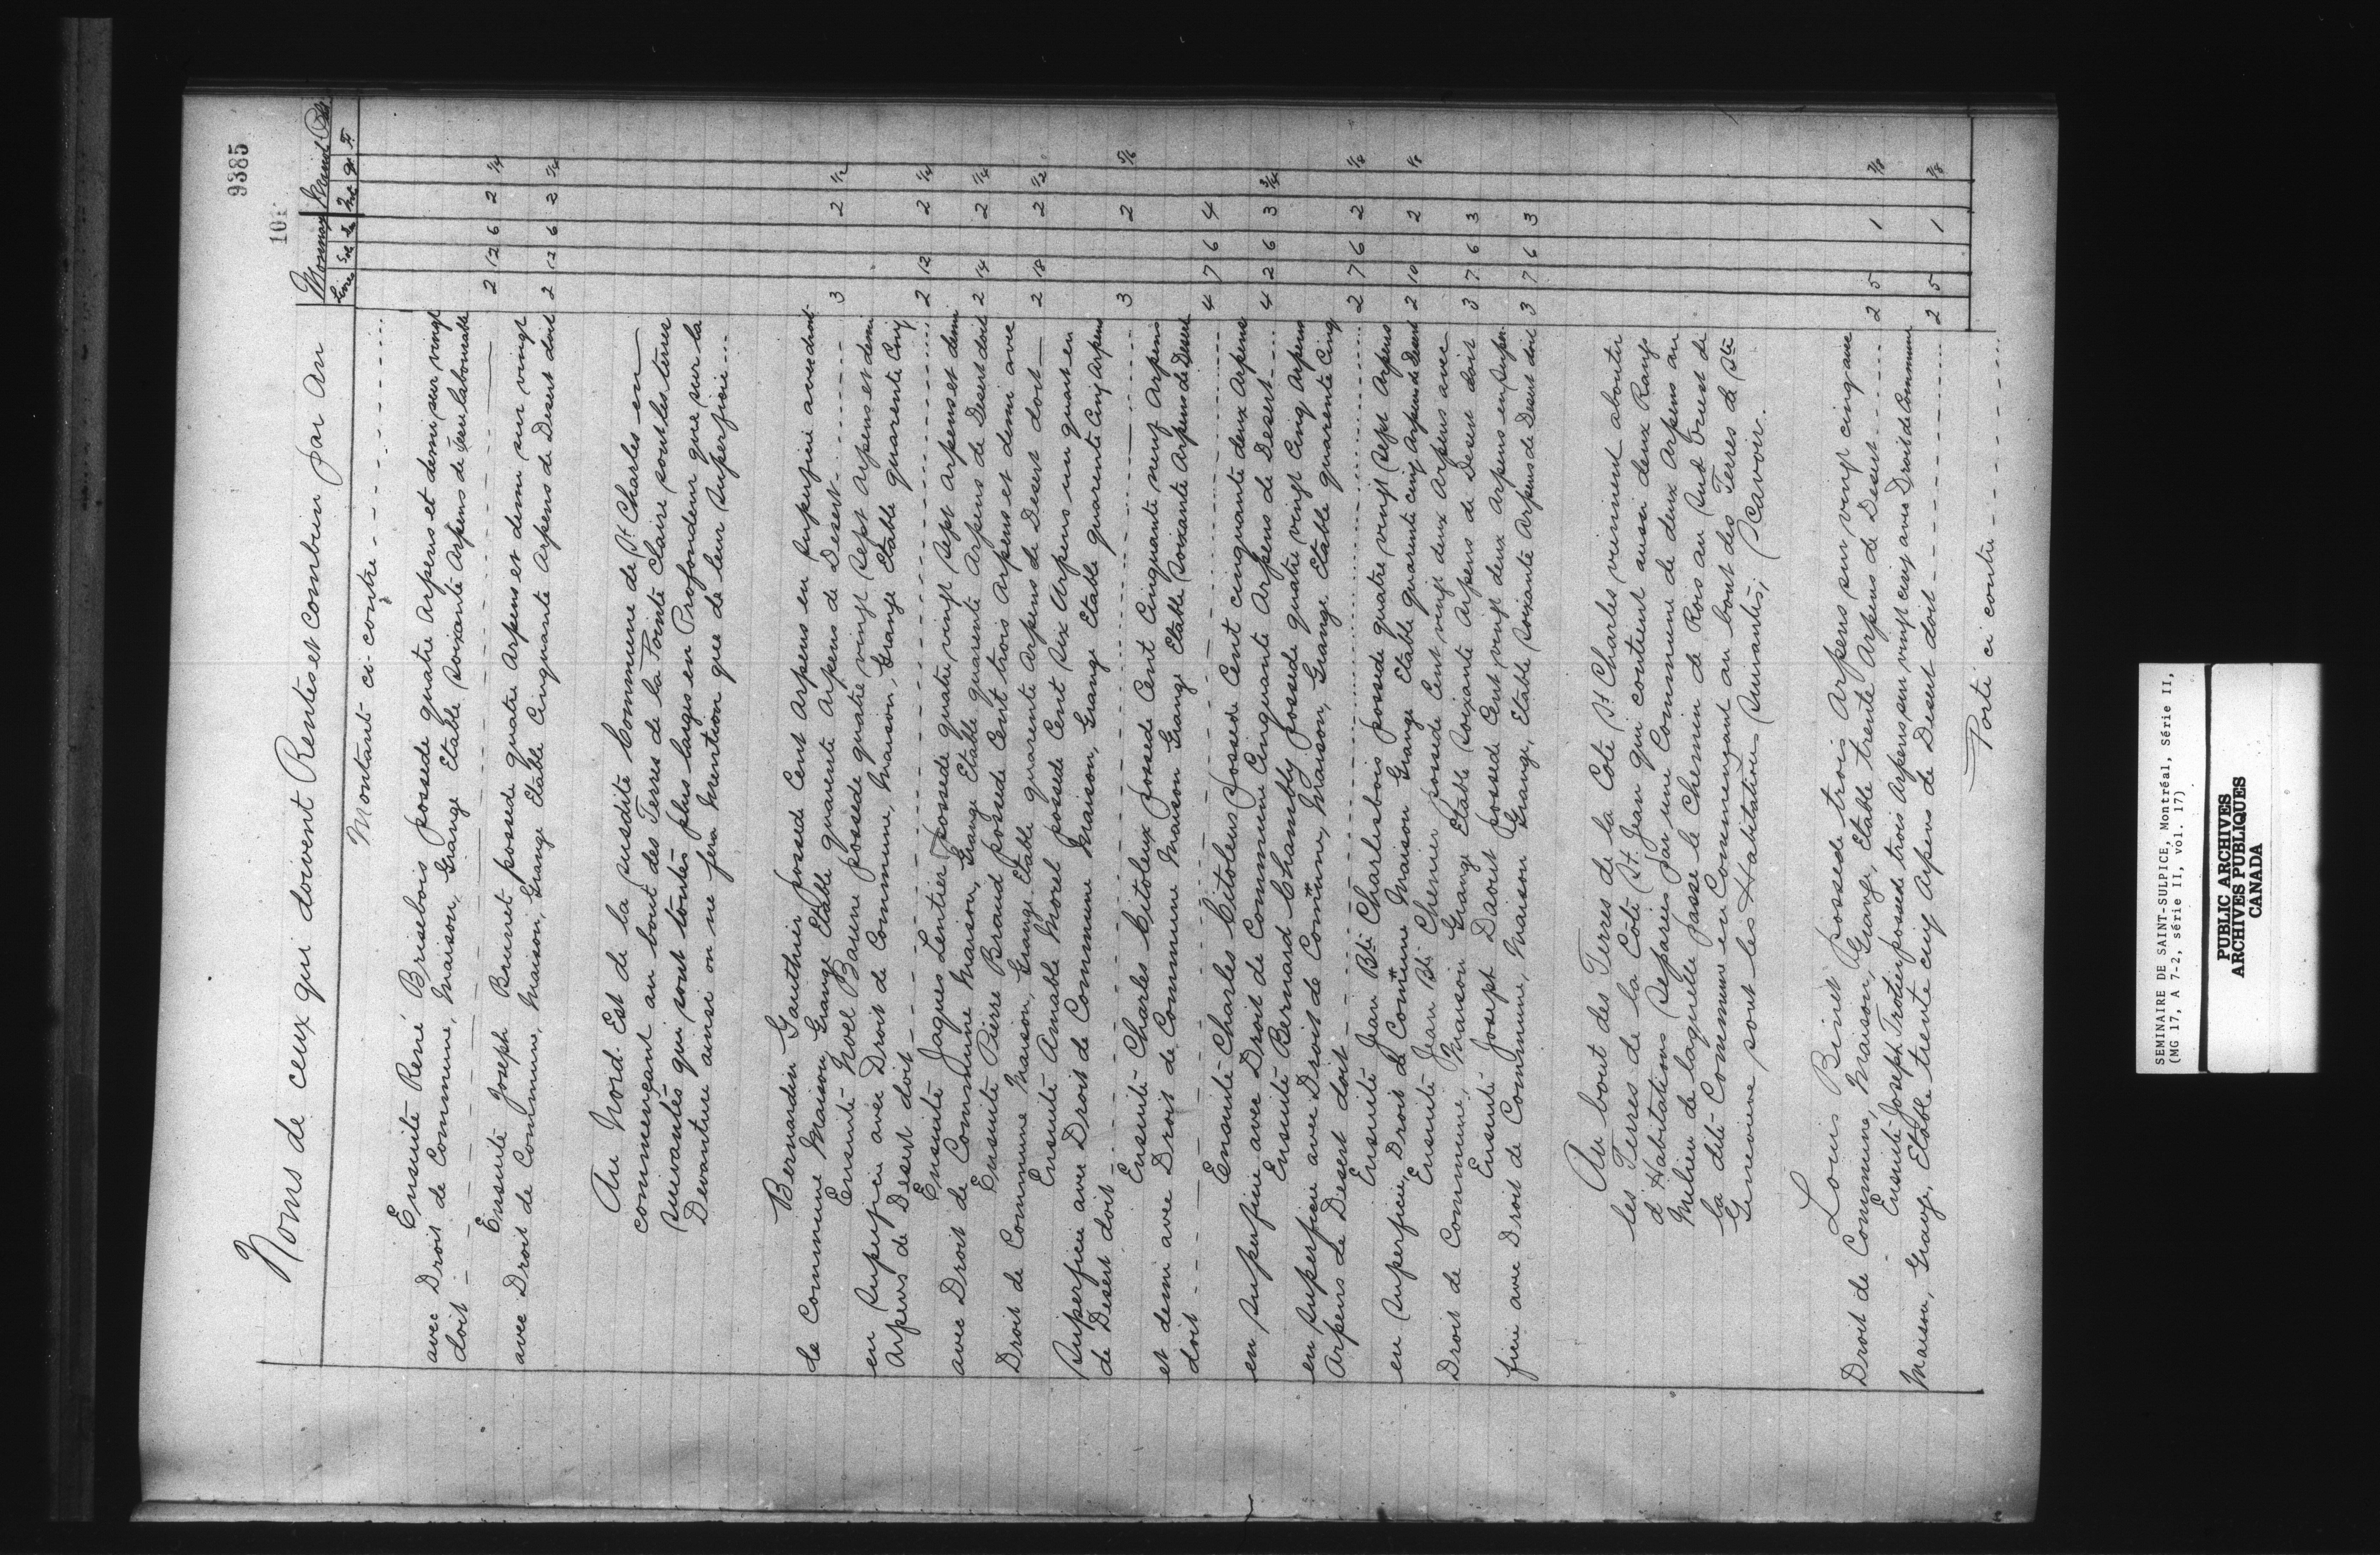 9385
101
Noms de ceux qui doivent Rentes et combien par An
Monnay Grainst
Livre Sol Dn Mt qr
Montant ci-contre
Ensuite René Brisebois possede quatre Arpens et demi sur vingt
avec Droit de Commune, Maison, Grange Etable soixante Arpens de terre labourable
doit 2 12 6 2 1/4
Ensuite Joseph Brunet possede quatre Arpens et demi sur vingt
avec Droit de Commune, Maison, Grange Etable Cinquante Arpens de Desert doit 2 12 6 2 1/4
Au Nord-Est de la susdite Commune de St Charles en
commençant au bout des Terres de la Pointe Claire sont les terres
suivantes qui sont toutes plus larges en Profondeur que sur la
Devanture ainsi on ne fera Mention que de leur Superficie
Bernardin Gauthier possede Cent Arpens en superficie avec droit
de Commune Maison Grange Etable quarente Arpens de Desert 3 2 1/2
Ensuite Noel Baune possede quatre vingt Sept Arpens et demi
en superficie avec Droit de Commune, Maison, Grange Etable quarente Cinq
Arpens de Desert doit 2 12 2 1/4
Ensuite Jaques Lentier possede quatre vingt Sept Arpens et demi
avec Droit de Commune Maison, Grange Etable quarente Arpens de Desert doit 2 14 2 1/4
Ensuite Pierre Braud possede Cent trois Arpens et demi avec
Droit de Commune Maison, Grange Etable quarente Arpens de Desert doit 2 18 2 1/2
Ensuite Amable Morel possede Cent Six Arpens un quart en
Superficie avec Droit de Commune Maison, Grange Etable quarente Cinq Arpens
de Desert doit 3 2
Ensuite Charles Citoleux possede Cent Cinquante neuf Arpens
et demi avec Droit de Commune Maison Grange Etable Soixante Arpens de Desert
doit 4 7 6 4
Ensuite Charles Citoleus possede Cent cinquante deux Arpens
en superficie avec Droit de Commune Cinquante Arpens de Desert 4 2 6 3 3/4
Ensuite Bernard Chambly possede quatre vingt Cinq Arpens
en superficie avec Droit de Comune, Maison, Grange Etable quarente Cinq
Arpens de Desert doit 2 7 6 2 1/8
Ensuite Jean Bte Charlesbois possede quatre vingt sept Arpens
en superficie, Droit de Comune Maison Grange Etable quarente cinq Arpens de Desert 2 10 2 1/8
Ensuite Jean Bte Chenier possede Cent vingt deux Arpens avec
Droit de Commune, Maison Grange Etable Soixante Arpens de Desert doit 3 7 6 3
Ensuite Joseph Daout possede Cent vingt deux Arpens en super
ficie avec Droit de Commune, Maison Grange, Etable soixante Arpens de Desert doit 3 7 6 3
Au bout des Terres de la Cote St Charles viennent aboutir
les Terres de la Cote St Jean qui contient aussi deux Rangs
d'Habitations Separées par une Commune de deux Arpens au
Milieu de laquelle passe le Chemin de Rois au Sud Ouest de
la dite Commune en Commençant au bout des Terres de Ste
Genevieve sont les Habitations Suivantes; Scavoir.
Louis Binet possede trois Arpens sur vingt cinq avec
Droit de Commune, Maison, Grange, Etable trente Arpens de Desert 2 5 1 7/8
Ensuite Joseph Trotier possede trois Arpens sur vingt cinq avec Droit de Commune
Maison, Grange, Etable trente cinq Arpens de Desert doit 2 5 1 7/8
Porté ci contre
SEMINAIRE DE SAINT-SULPICE, Montréal, Série II,
(MG 17, A 7-2, série II, vol. 17)
PUBLIC ARCHIVES
ARCHIVES PUBLIQUES
CANADA